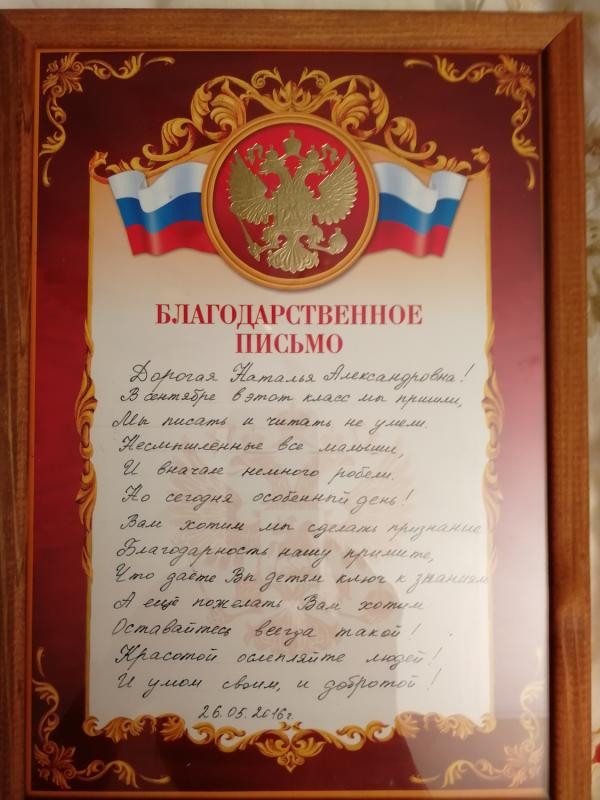 БЛАГОДАРСТВЕННОЕ
ПИСЬМО
Дорогая Наталья Александровна!
В сентябре в этот класс мы пришли,
Мы писать и читать не умели.
Несмышлёные все малыши,
И вначале немного робели.
Но сегодня особенный день!
Вам хотим мы сделать признание
Благодарность нашу примите,
Что даёте Вы детям ключ к знаниям
А ещё пожелать Вам хотим
Оставайтесь всегда такой!
Красотой ослепляйте людей!
И умом своим, и добротой!
26.05.2016г.